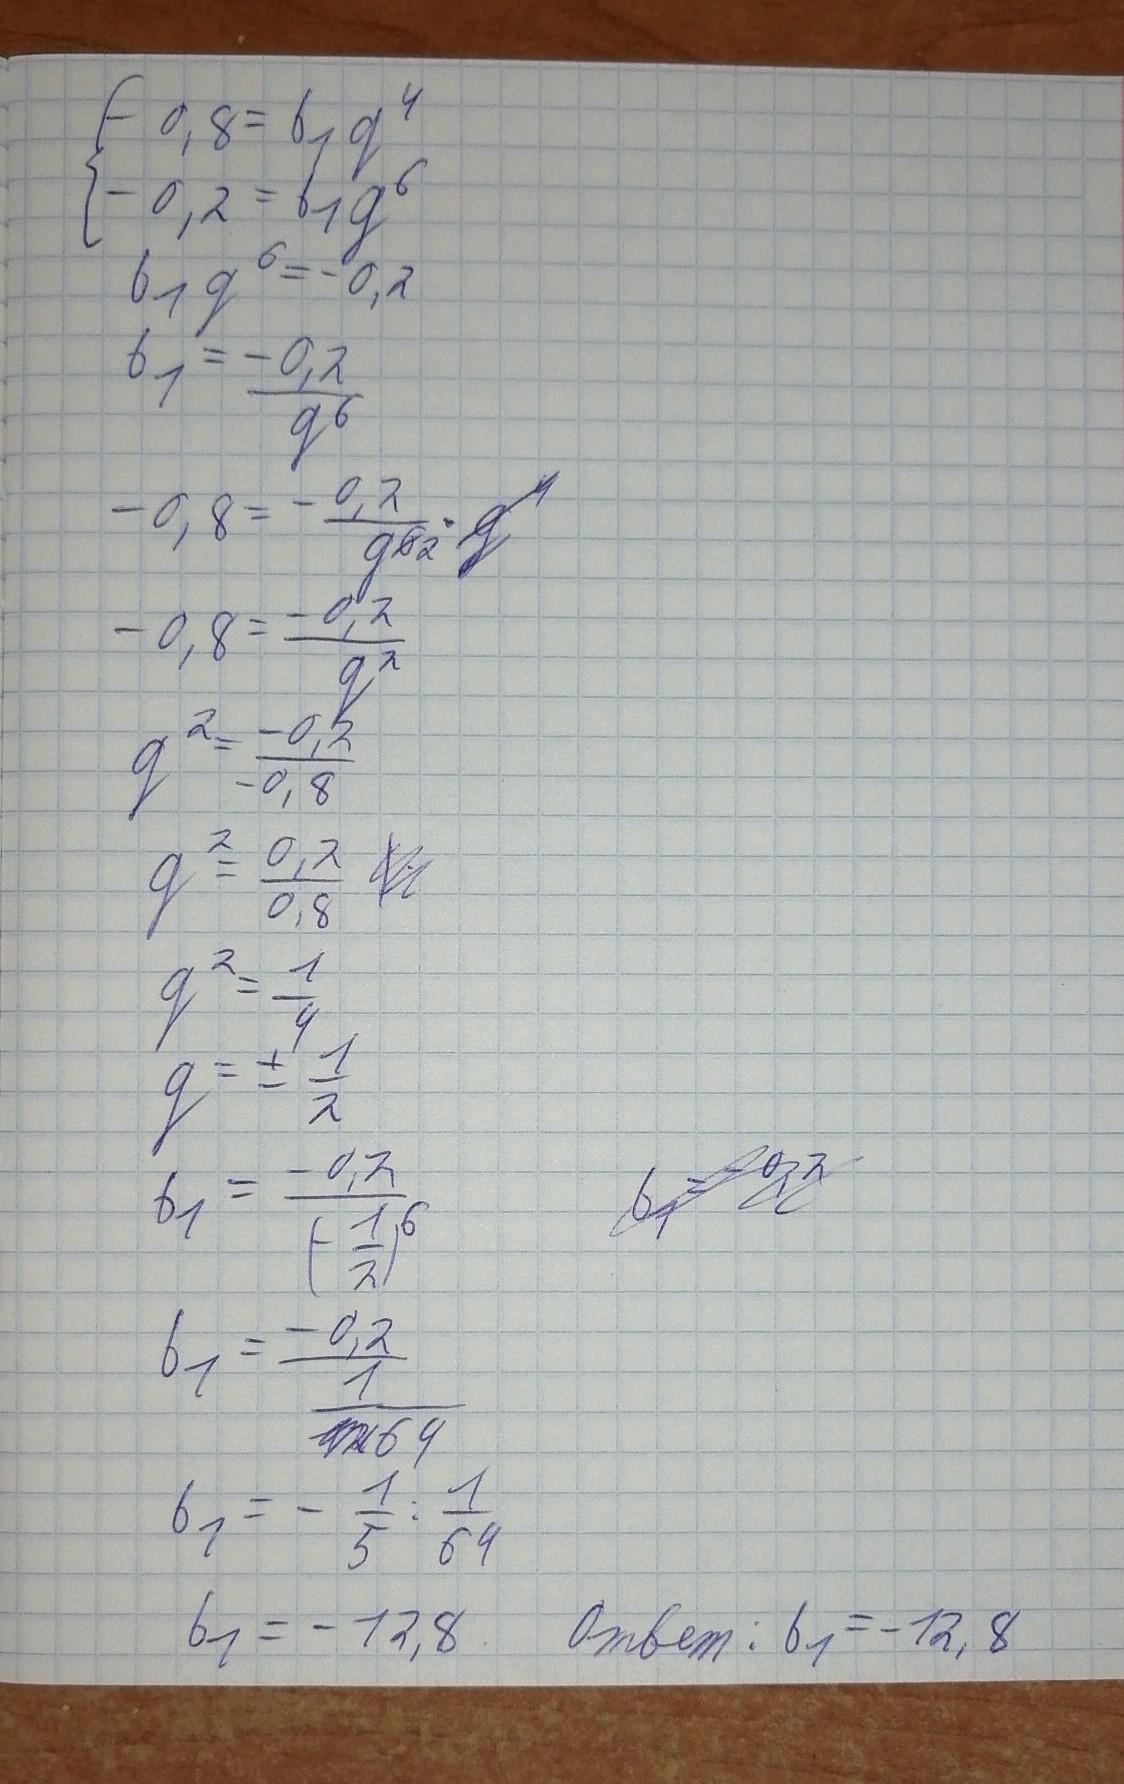 { - 0,8 = b₁ q⁴
- 0,2 = b₁ q⁶
b₁ q⁶ = - 0,2
b₁ = -0,2 / q⁶
- 0,8 = - 0,2 / q⁶ ² · q⁴
- 0,8 = -0,2 / q²
q² = -0,2 / -0,8
q² = 0,2 / 0,8
q² = 1/4
q = ± 1/2
b₁ = -0,2 / (- 1/2)⁶ b₁ = - 0,2
b₁ = -0,2 / 1/64
b₁ = - 1/5 : 1/64
b₁ = - 12,8 Ответ: b₁ = -12,8